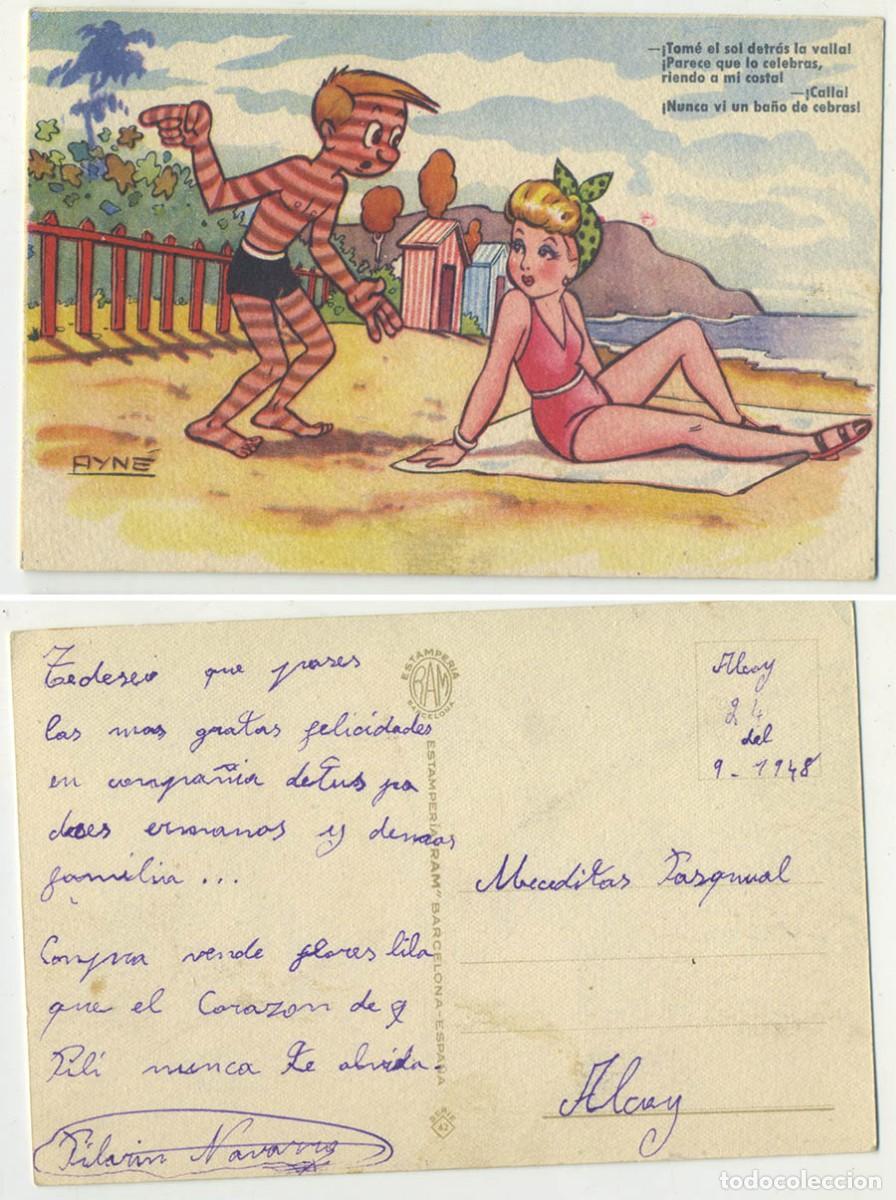 —¡Tomé el sol detrás la valla!
¡Parece que lo celebras,
riendo a mi costa!
—¡Calla!
¡Nunca vi un baño de cebras!
AYNÉ
Tedeseo que pases
las mas gratas felicidades
en compañia detus pa
dres ermanos y demas
familia...
Compra vende flores lila
que el Corazon de
Pili nunca te olvida.
Pilarin Navarro
ESTAMPERIA
RAM
BARCELONA
ESTAMPERÍA "RAM" BARCELONA-ESPAÑA
SERIE
42
Alcoy
24
del
9-1948
Meceditas Pasqual
Alcoy
todocoleccion